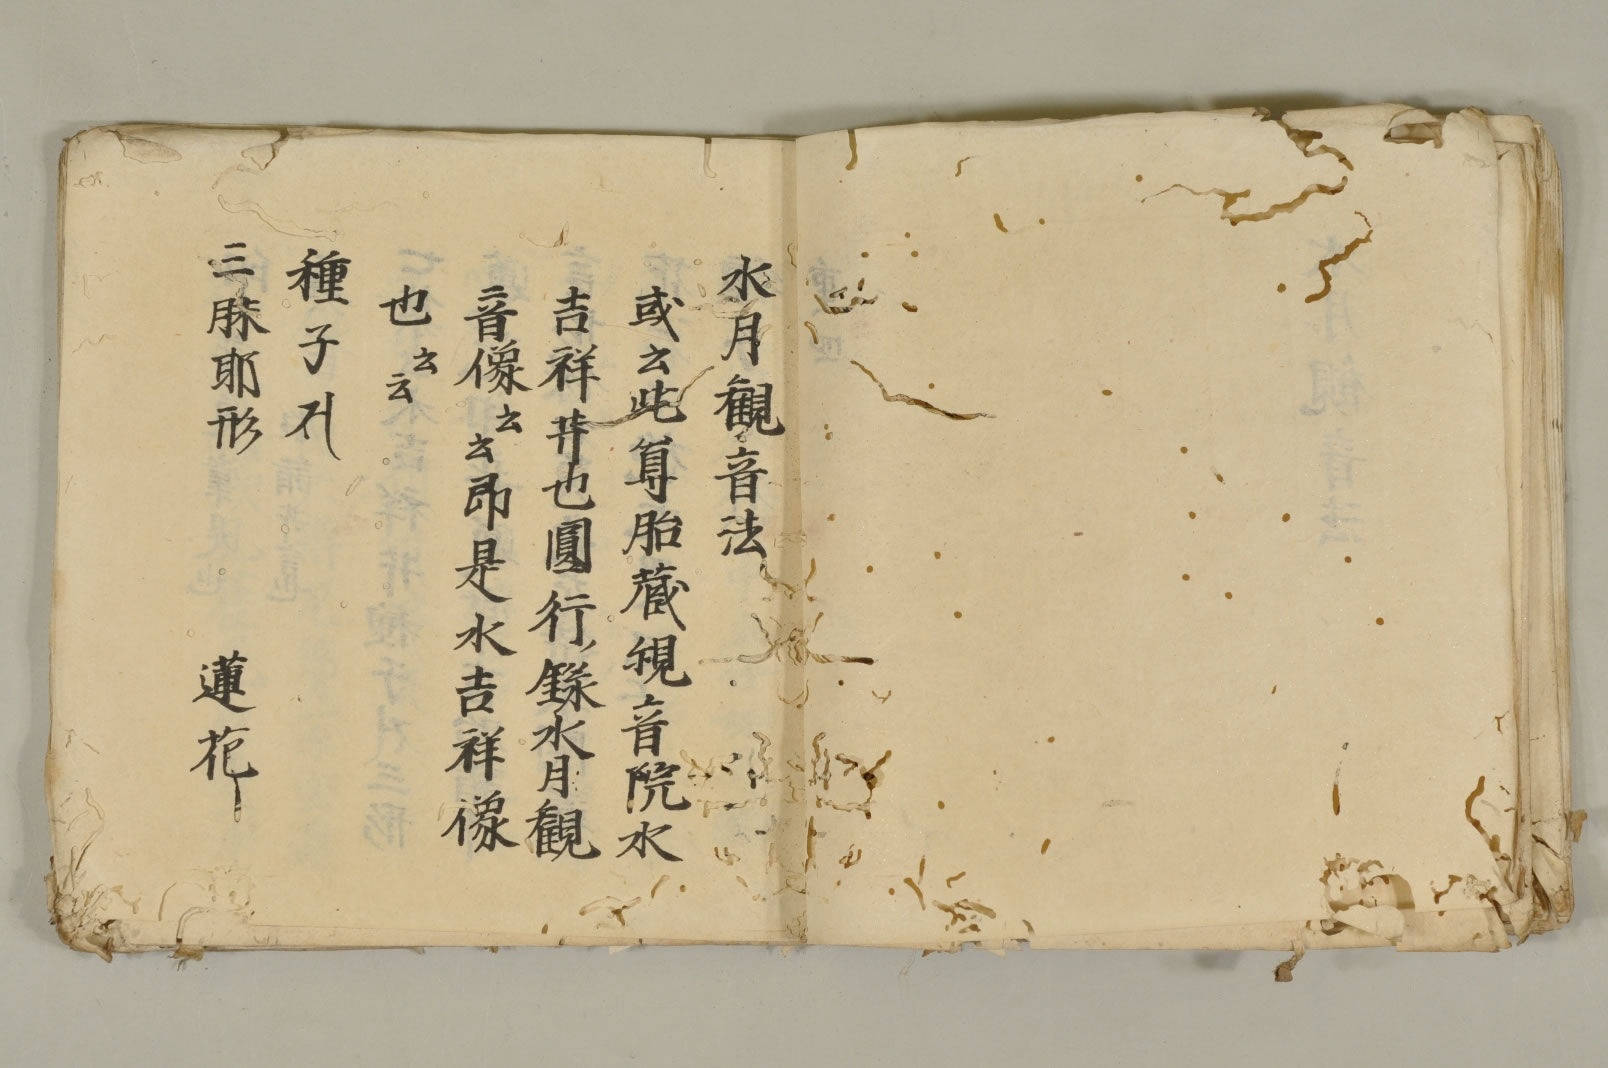 水月観音法
或云此尊胎蔵観音院水
吉祥井也圓行録水月観
音像云云即是水吉祥像
也云云
種子
三昧耶形　蓮花